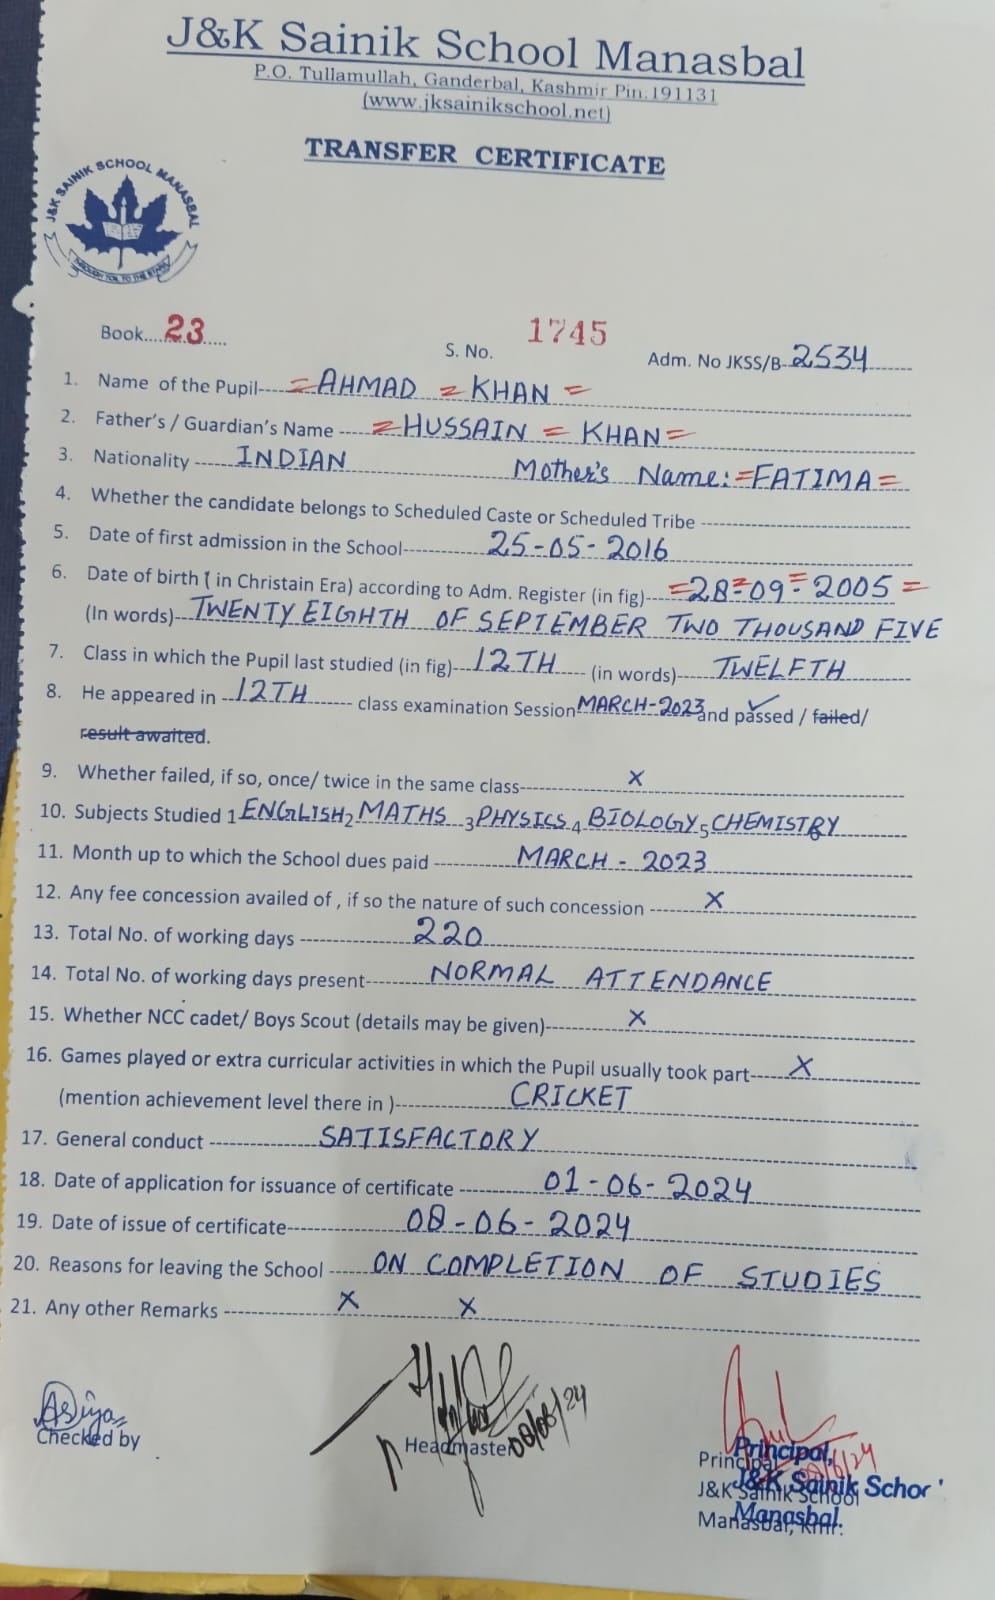 J&K Sainik School Manasbal
P.O. Tullamullah, Ganderbal, Kashmir Pin.191131
(www.jksainikschool.net)
TRANSFER CERTIFICATE
J&K SAINIK SCHOOL MANASBAL
THROUGH TOIL TO THE STARS
Book....23.....
S. No. 1745
Adm. No JKSS/B-2534
1. Name of the Pupil----=AHMAD = KHAN =
2. Father's / Guardian's Name -----=HUSSAIN = KHAN=
3. Nationality ------INDIAN Mother's Name:=FATIMA=
4. Whether the candidate belongs to Scheduled Caste or Scheduled Tribe ----------
5. Date of first admission in the School----------25-05-2016
6. Date of birth ( in Christain Era) according to Adm. Register (in fig)----=28=-09=-2005=
(In words)--TWENTY EIGHTH OF SEPTEMBER TWO THOUSAND FIVE
7. Class in which the Pupil last studied (in fig)---12TH---- (in words)-----TWELFTH
8. He appeared in --12TH------ class examination Session MARCH-2023 and passed / failed/
result awaited.
9. Whether failed, if so, once/ twice in the same class----------X
10. Subjects Studied 1 ENGLISH 2 MATHS 3 PHYSICS 4 BIOLOGY 5 CHEMISTRY 6
11. Month up to which the School dues paid ----------MARCH - 2023
12. Any fee concession availed of , if so the nature of such concession ------X
13. Total No. of working days ------------220
14. Total No. of working days present------NORMAL ATTENDANCE
15. Whether NCC cadet/ Boys Scout (details may be given)--------X
16. Games played or extra curricular activities in which the Pupil usually took part-----X
(mention achievement level there in )----------CRICKET
17. General conduct ------------SATISFACTORY
18. Date of application for issuance of certificate --------01-06-2024
19. Date of issue of certificate------------08-06-2024
20. Reasons for leaving the School -----ON COMPLETION OF STUDIES
21. Any other Remarks ------------X X
Asiya
Checked by
Headmaster 08/06/24
Principal
J&K Sainik School
Manasbal, Kmr.
Principal,
J&K Sainik School
Manasbal.
08/6/24